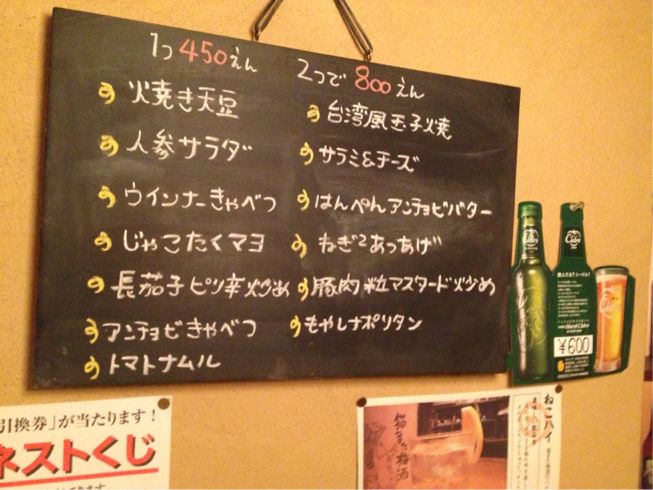 1つ450えん 2つで800えん
焼き天豆
人参サラダ
ウインナーきゃべつ
じゃこたくマヨ
長茄子ピリ辛炒め
アンチョビきゃべつ
トマトナムル
台湾風玉子焼
サラミ&チーズ
はんぺんアンチョビバター
ねぎ2あつあげ
豚肉粒マスタード炒め
もやしナポリタン
Hard Cider
¥600
引換券」が当たります!
ネストくじ
ねこハイ
猫また梅酒